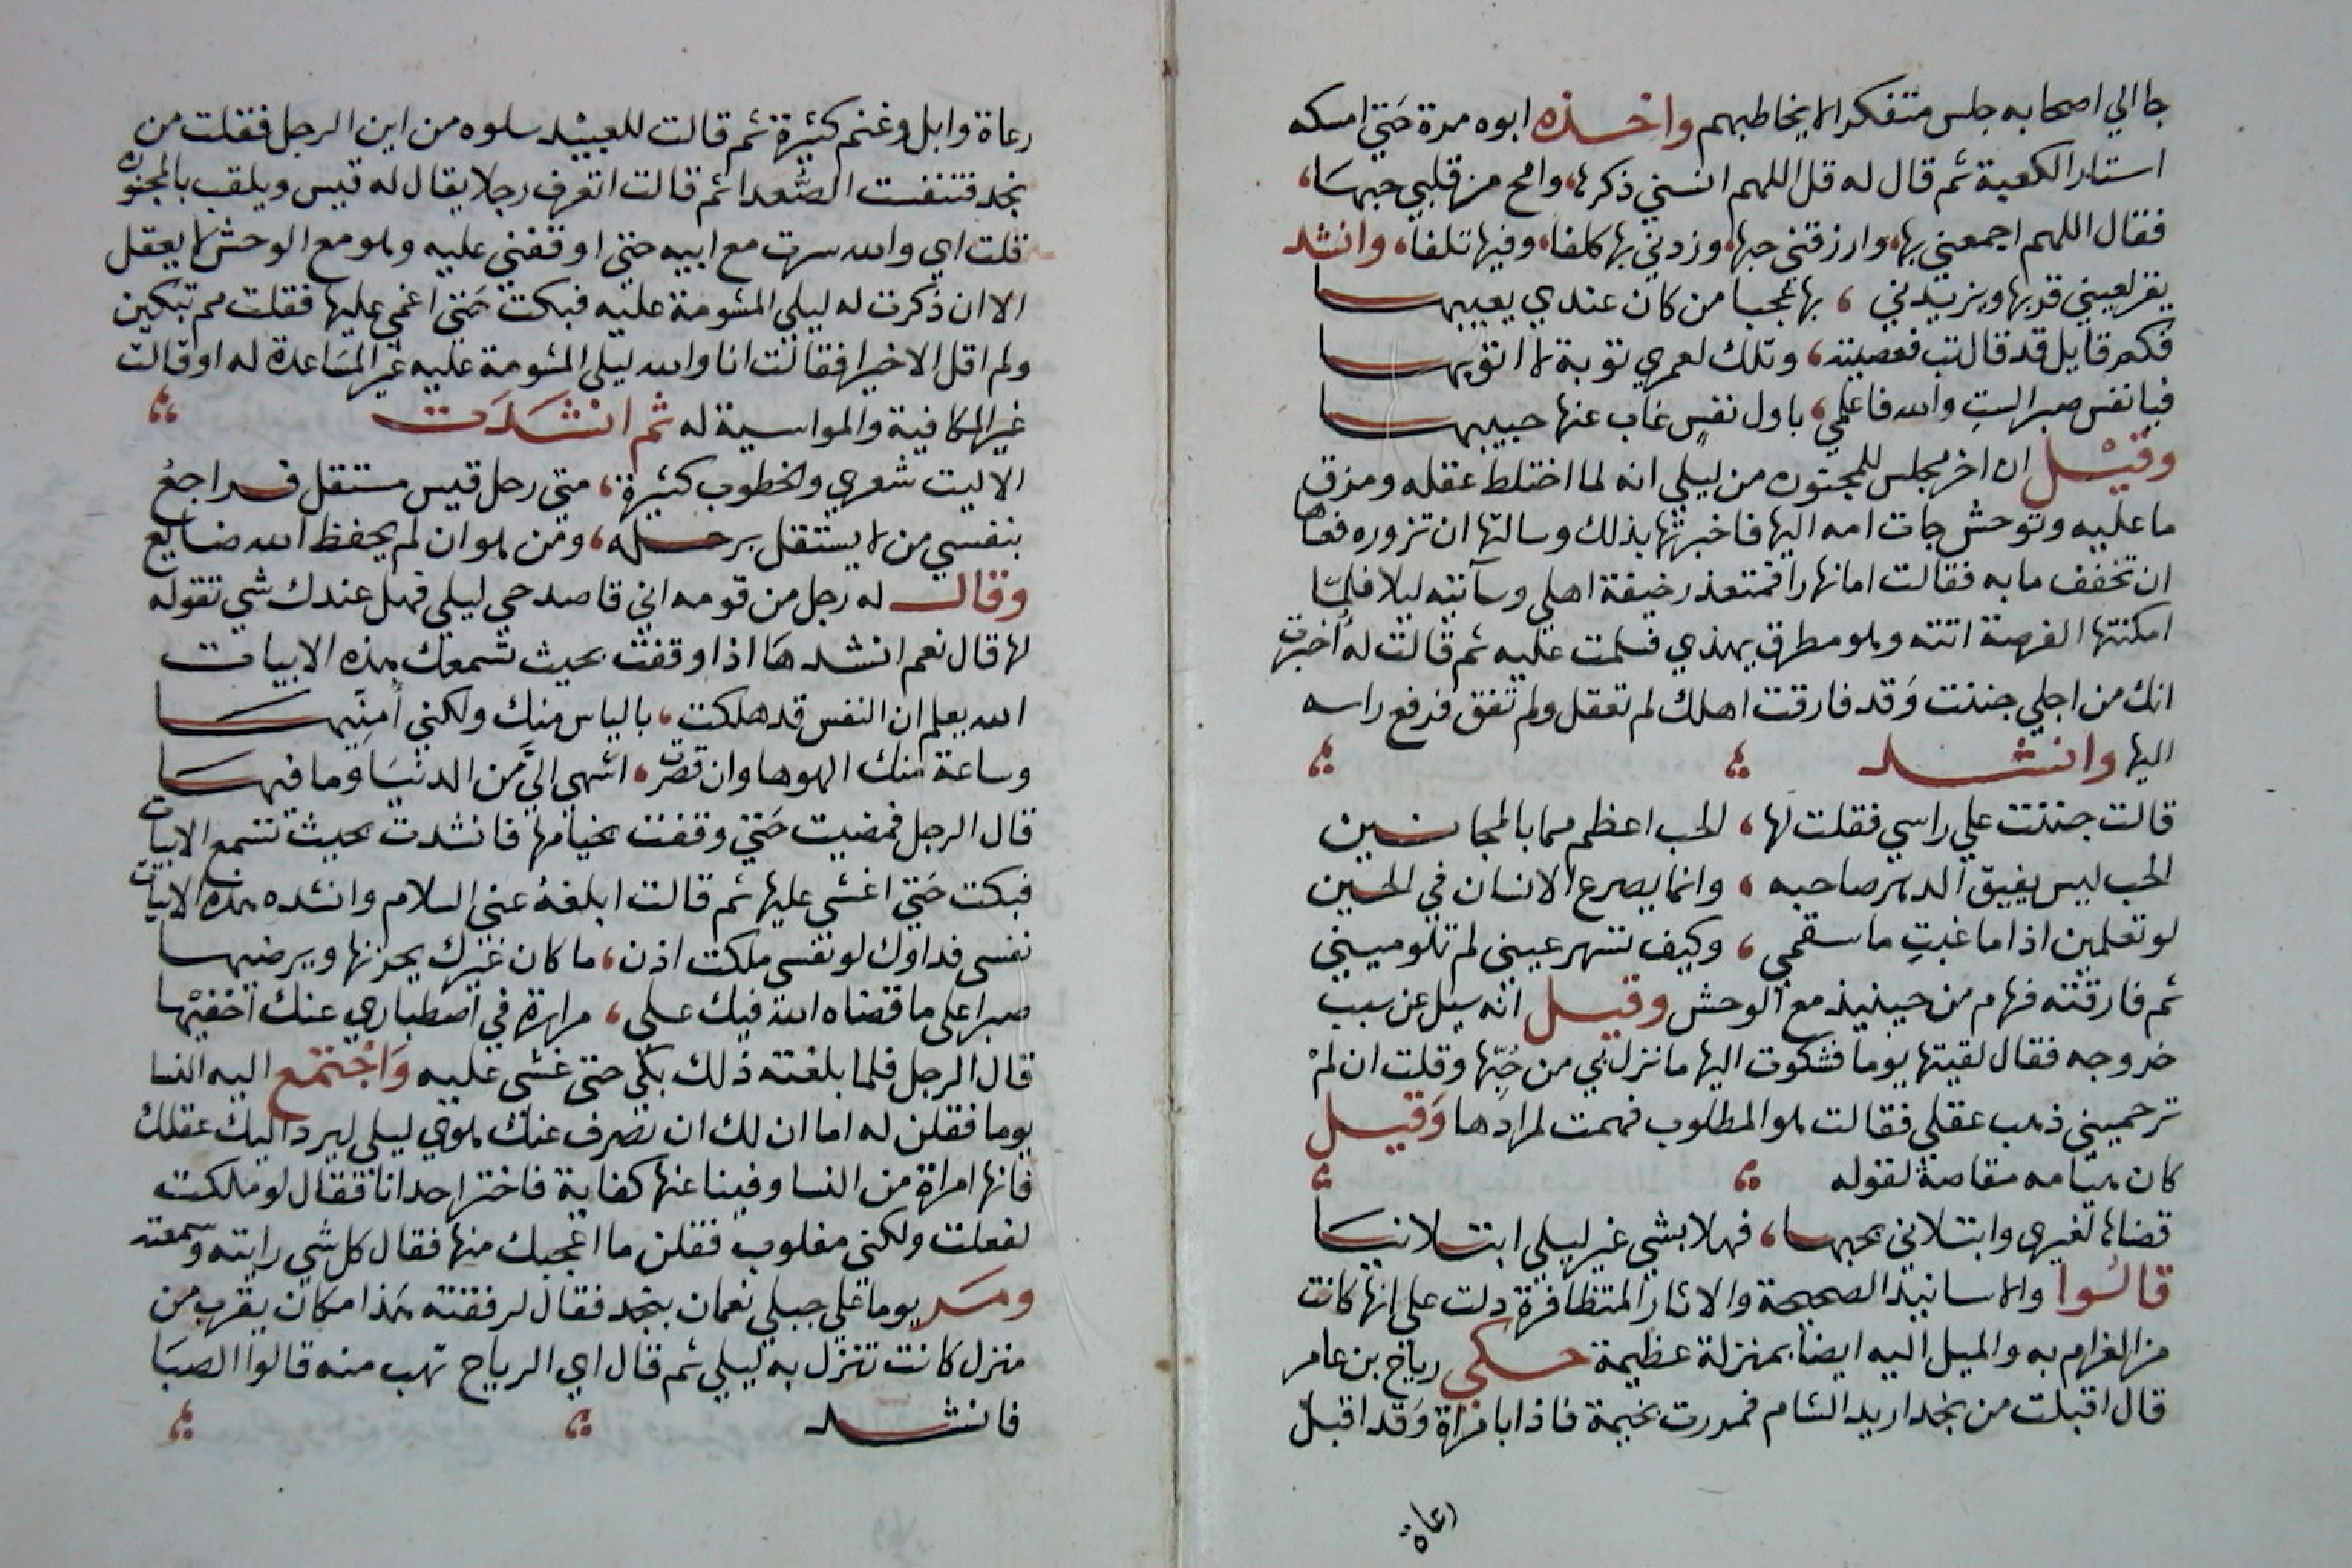 جا الي اصحابه جلس متفكرا لا يخاطبهم واخذه ابوه مرة حَتي امسكه
استار الكعبة ثم قال له قل اللهم انسني ذكرها، وامح من قلبي حبهَا،
فقال اللهم اجمعني بها، وارزقني حبها، وزدني بها كلفا، وفيها تلفا، وانشد
يقر لعيني قربها ويزيدني ، بها عجبا من كان عندي يعيبها
فكم قايل قد قال تب فعصيته ، وتلك لعمري توبة لا اتوبها
فيا نفس صبرا لستِ والله فاعلمي ، باول نفسٍ غاب عنها حبيبها
وقيْل ان اخر مجلس للمجنون من ليلي انه لما اختلط عقله ومزق
ما عليه وتوحش جات امه اليها فاخبرتها بذلك وسالتها ان تزوره فعساها
ان تخفف ما به فقالت اما نهارا فمتعذر خيفة اهلي وسآتيه ليلا فلمّا
امكنتها الفرصة اتته وهو مطرق يهذي فسلمت عليه ثم قالت له أخبرت
انك من اجلي جننت وَقد فارقت اهلك لم تعقل ولم تفق فرفع راسه
اليها وانشد
قالت جننت علي راسي فقلت لها ، الحب اعظم مما بالمجانين
الحب ليس يفيق الدهر صاحبه ، وانما يصرع الانسان في الحين
لو تعلمين اذا ما غبتِ ما سقمي ، وكيف تسهر عيني لم تلوميني
ثم فارقته فهام من حينيذ مع الوحش وقيل انه سيل عن سبب
خروجه فقال لقيتها يوما فشكوت اليها ما نزل بي من حُبّها وقلت ان لمْ
ترحميني ذهب عقلي فقالت هو المطلوب فهمت لمرادها وَقيل
كان هيامه مقاصة لقوله
قضاها لغيري وابتلاني بحبها ، فهلا بشي غير ليلي ابتلانيَا
قالُوا والاسانيد الصحيحة والاثار المتظافرة دلت علي انها كانت
من الغرام به والميل اليه ايضا بمنزلة عظيمة حكي رياح بن عامر
قال اقبلت من نجد اريد الشام فمررت بخيمة فاذا بامراة وَقد اقبل
رعاة
رعاة وابل وغنم كثيرة ثم قالت للعبيْد سلوه من اين الرجل فقلت من
نجد فتنفست الصُّعدا ثم قالت اتعرف رجلا يقال له قيس ويلقب بالمجنون
قلت اي والله سرت مع ابيه حتي اوقفني عليه وهو مع الوحش لا يعقل
الا ان ذكرت له ليلي المشومة عليه فبكت حَتي اغمي عليها فقلت مم تبكين
ولم اقل الا خيرا فقالت انا والله ليلي المشومة عليه غير المسَاعدة له او قالت
غير المكافية والمواسية له ثم انشدَت
الا ليت شعري والخطوب كثيرة ، متي رحل قيس مستقل فراجعُ
بنفسي من لا يستقل برحله ، ومن هو ان لم يحفظ الله ضايع
وقال له رجل من قومه اني قاصد حي ليلي فهل عندك شي تقوله
لها قال نعم انشدهَا اذا وقفت بحيث تسمعك هذه الابيات
الله يعلم ان النفس قد هلكت ، بالياس منك ولكني أُمنِّيهَا
وساعة منك الهوها وان قصرت ، اشهي اليَّ من الدنيَا وما فيهَا
قال الرجل فمضيت حَتي وقفت بخيامها فانشدت بحيث تسمع الابيات
فبكت حَتي اغشي عليها ثم قالت ابلغهُ عني السلام وانشده هذه الابيات
نفسي فداوك لو نفسي ملكت اذن ، ما كان غيرك يحزنها ويرضيها
صبرا علي ما قضاه الله فيك علي ، مرارة في اصطباري عنك اخْفيْها
قال الرجل فلما بلغته ذلك بكي حتي غشي عليه وَاجْتمع اليه النسا
يوما فقلن له اما ان لك ان تصرف عنك هوي ليلي ليرد اليك عقلك
فانها امراة من النسا وفينا عنها كفاية فاختر احدانا فقال لو ملكت
لفعلت ولكني مغلوب فقلن ما اعجبك منها فقال كل شي رايته وسمعته
ومَر يوما علي جبلي نعمان بنجد فقال لرفقته هَذا مكان يقرب من
منزل كانت تنزل به ليلي ثم قال اي الرياح تهب منه قالوا الصبَا
فانشد